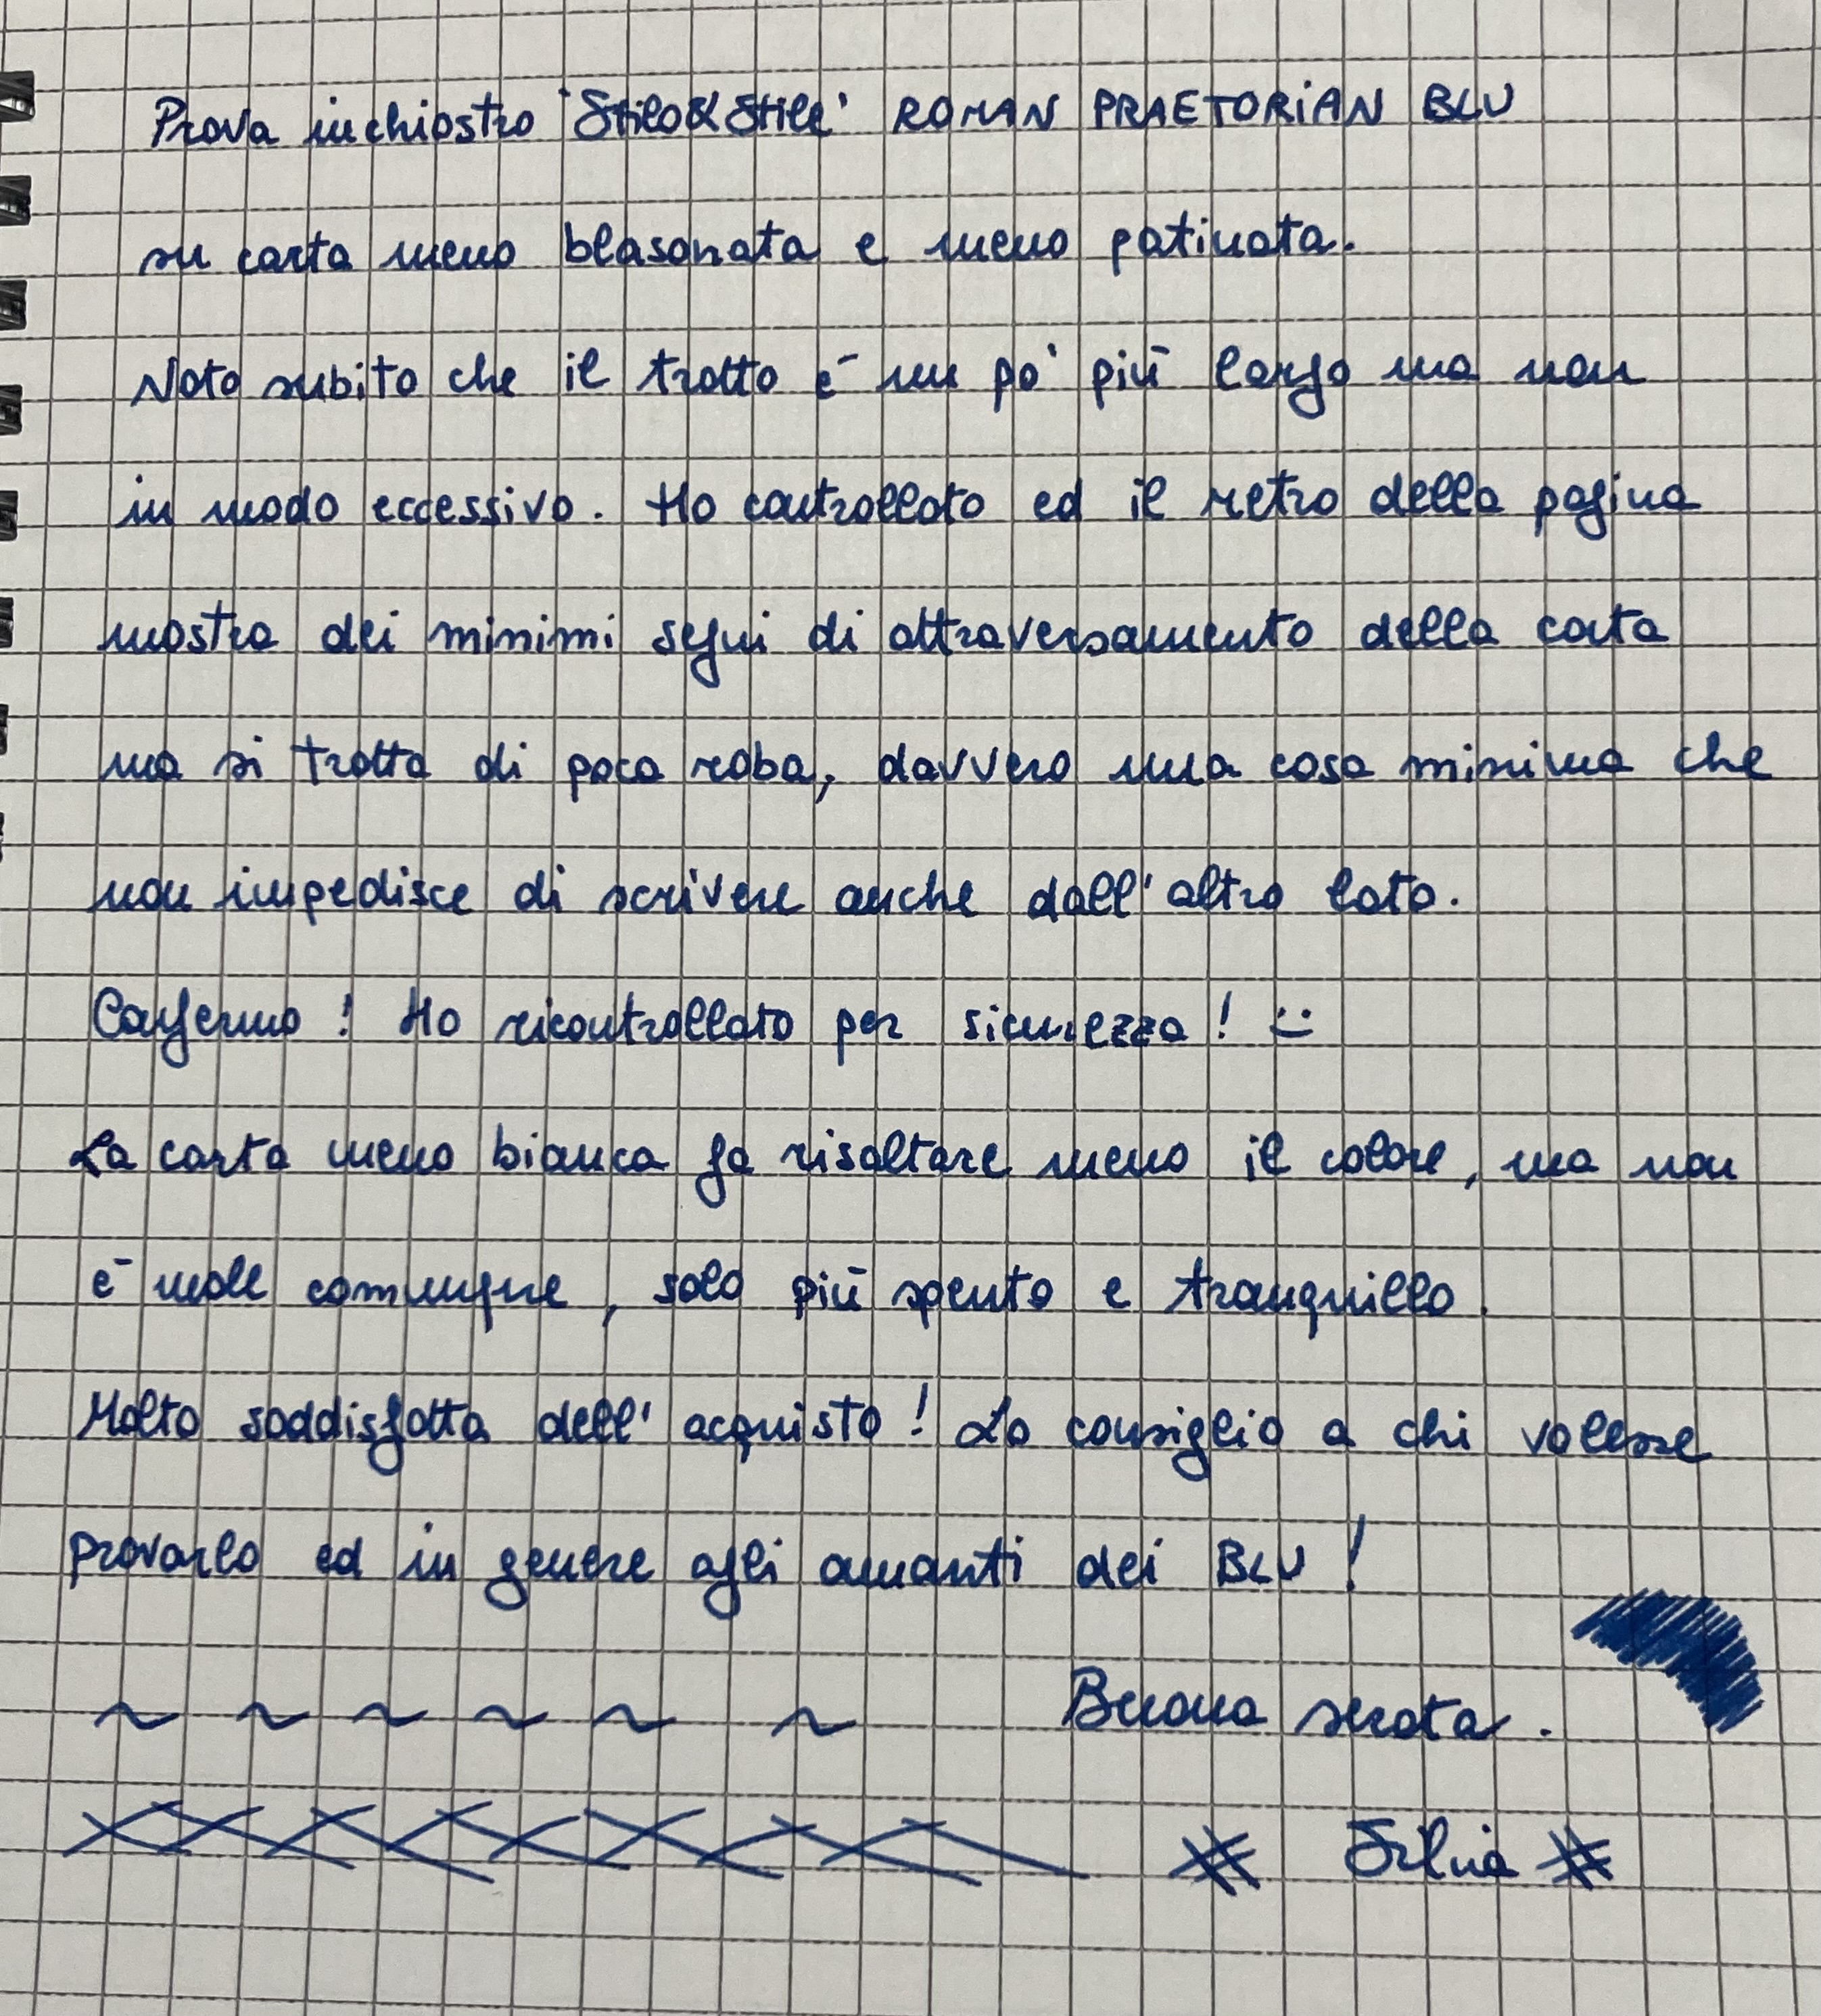 Prova inchiostro 'Stilo&Stile' ROMAN PRAETORIAN BLU
su carta meno blasonata e meno patinata.
Noto subito che il tratto è un po' più largo ma non
in modo eccessivo. Ho controllato ed il retro della pagina
mostra dei minimi segni di attraversamento della carta
ma si tratta di poca roba, davvero una cosa minima che
non impedisce di scrivere anche dall'altro lato.
Confermo! Ho ricontrollato per sicurezza! :)
La carta meno bianca fa risaltare meno il colore, ma non
è male comunque, solo più spento e tranquillo.
Molto soddisfatta dell'acquisto! Lo consiglio a chi volesse
provarlo ed in genere agli amanti dei BLU!
~ ~ ~ ~ ~ ~ Buona serata.
# Silvia #